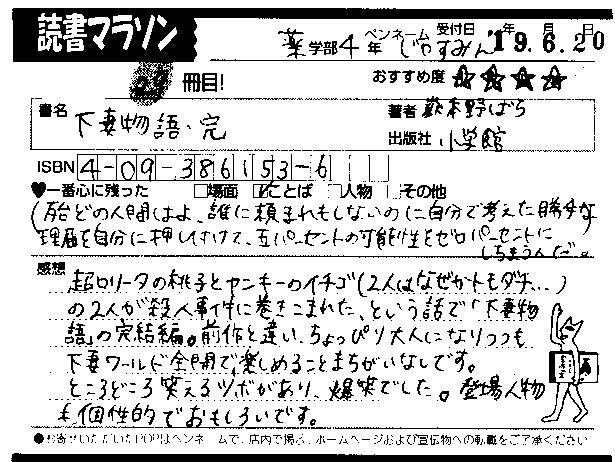 読書マラソン
薬学部4年 ペンネーム じゃすみん 受付日 '19年6月20日
29冊目!
おすすめ度 ★★★★
書名 下妻物語・完
著者 嶽本野ばら
出版社 小学館
ISBN 4-09-386153-6
♥一番心に残った □場面 ☑ことば □人物 □その他
(殆どの人間はよ、誰に頼まれもしないのに自分で考えた勝手な
理屈を自分に押しつけて、五パーセントの可能性をゼロパーセントに
しちまうんだ。
感想
超ロリータの桃子とヤンキーのイチゴ(2人はなぜかトモダチ…)
の2人が殺人事件に巻きこまれた、という話で「下妻物
語」の完結編。前作と違い、ちょっぴり大人になりつつも
下妻ワールド全開で楽しめることまちがいなしです。
ところどころ笑えるツボがあり、爆笑でした。登場人物
も個性的でおもしろいです。
●お寄せいただいたPOPはペンネームで、店内で掲示、ホームページおよび宣伝物への転載をご了承ください